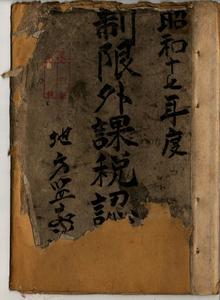 昭和十七年度
制限外課税認
地方監